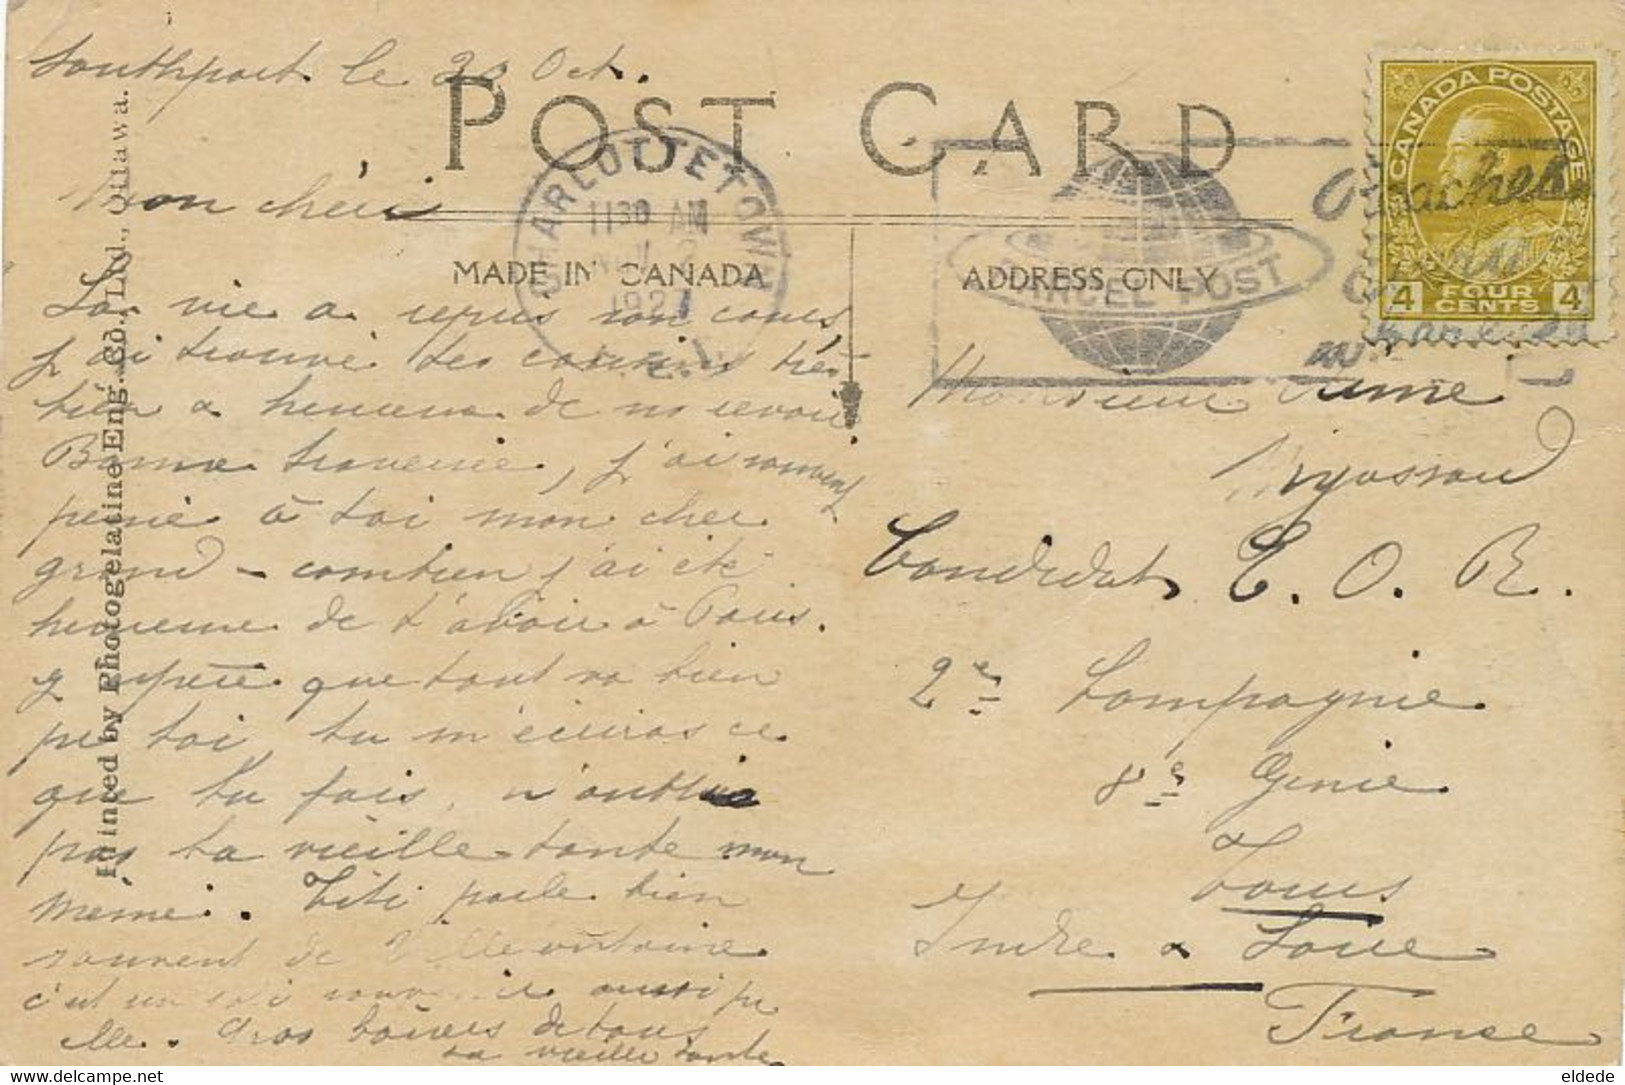 Southport le 20 Oct.
POST CARD
CANADA POSTAGE
Mon chéri
CHARLOTTETOWN
1130 AM
2
1927
MADE IN CANADA
ADDRESS ONLY
PARCEL POST
4 FOUR CENTS 4
La vie a repris son cours
j'ai trouvé les cousins très
bien & heureux de me revoir
Bonne traversée, j'ai souvent
pensé à toi mon cher
grand – combien j'ai été
heureuse de t'avoir à Paris.
J'espère que tout va bien
pr toi, tu m'écriras ce
que tu fais, n'oublie
pas ta vieille tante mon
même. Titi parle bien
souvent de Villeontoine
c'est un joli souvenir aussi pr
elle. Gros baisers de tous
ta vieille tante
Monsieur Aimé
Candidat E. O. R.
2e Compagnie
8e Génie
Tours
Indre & Loire
France
Printed by Photogelatine Eng. Co., Ltd., Ottawa.
eldede